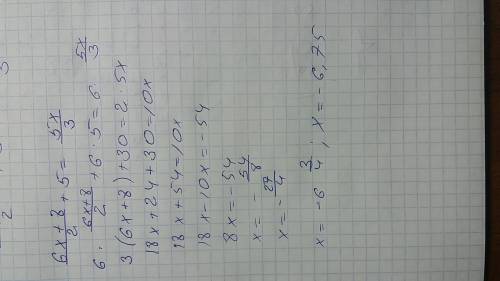 (6x+8)/2 + 5 = 5x/3
6 · (6x+8)/2 + 6 · 5 = 6 · 5x/3
3(6x+8)+30=2·5x
18x+24+30=10x
18x+54=10x
18x-10x=-54
8x=-54
x=-54/8
x=-27/4
x=-6 3/4; x=-6,75